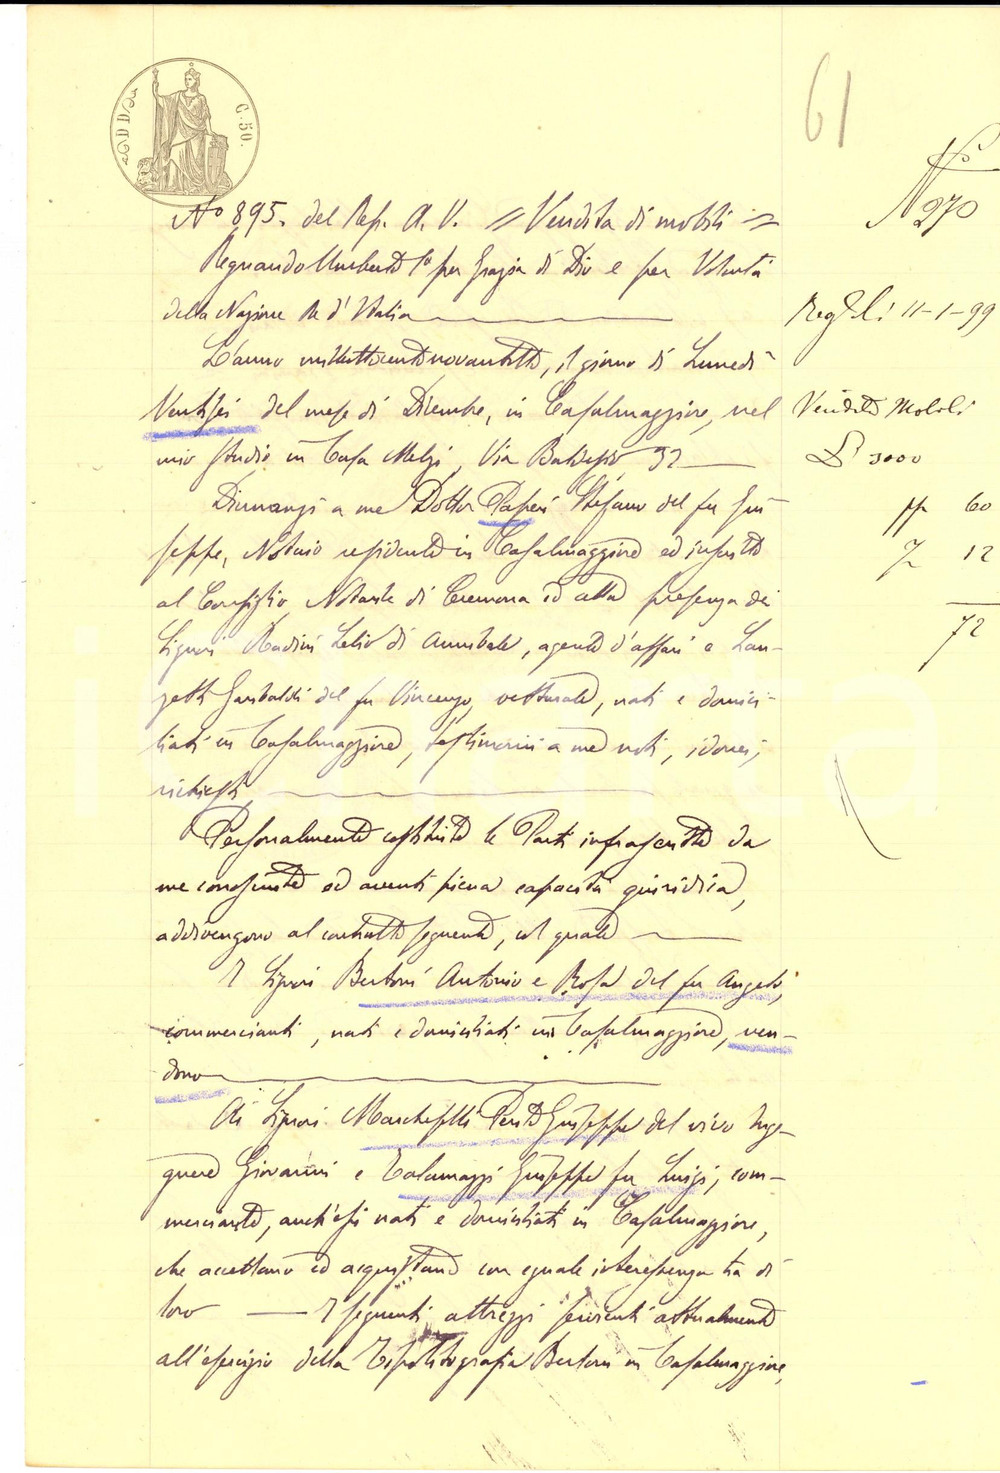 C. 50.
61
No 895. del Rep. A. V. // Vendita di mobili =
No 270
Regnando Umberto Io per Grazia di Dio e per Volontà
della Nazione Re d'Italia
Reg. li 11-1-99
L'anno milleottocentonovantotto, il giorno di Lunedì
Ventisei del mese di Dicembre, in Casalmaggiore, nel
Vendita Mobili
mio studio in Casa Melzi, Via Baldesio 32
£ 3000
Dinnanzi a me Dottor Paperi Stefano del fu Giu-
60
seppe, Notaio residente in Casalmaggiore ed inscritto
12
al Consiglio Notarile di Cremona ed alla presenza dei
72
Signori Radini Lelio di Annibale, agente d'affari e Lan-
zetti Garibaldi del fu Vincenzo, vetturale, nati e domici-
liati in Casalmaggiore, testimonii a me noti, idonei,
richiesti
Personalmente costituite le Parti infrascritte da
me conosciute ed aventi piena capacità giuridica,
addivengono al contratto seguente, col quale
I Signori Bertoni Antonio e Rosa del fu Angelo,
commercianti, nati e domiciliati in Casalmaggiore, ven-
dono
Ai Signori Marcheselli Perito Giuseppe del vivo Inge-
gnere Giovanni e Talamazzi Giuseppe fu Luigi, com-
merciante, anch'essi nati e domiciliati in Casalmaggiore,
che accettano ed acquistano con eguale interessenza tra di
loro I seguenti attrezzi servienti attualmente
all'esercizio della Tipolitografia Bertoni in Casalmaggiore,